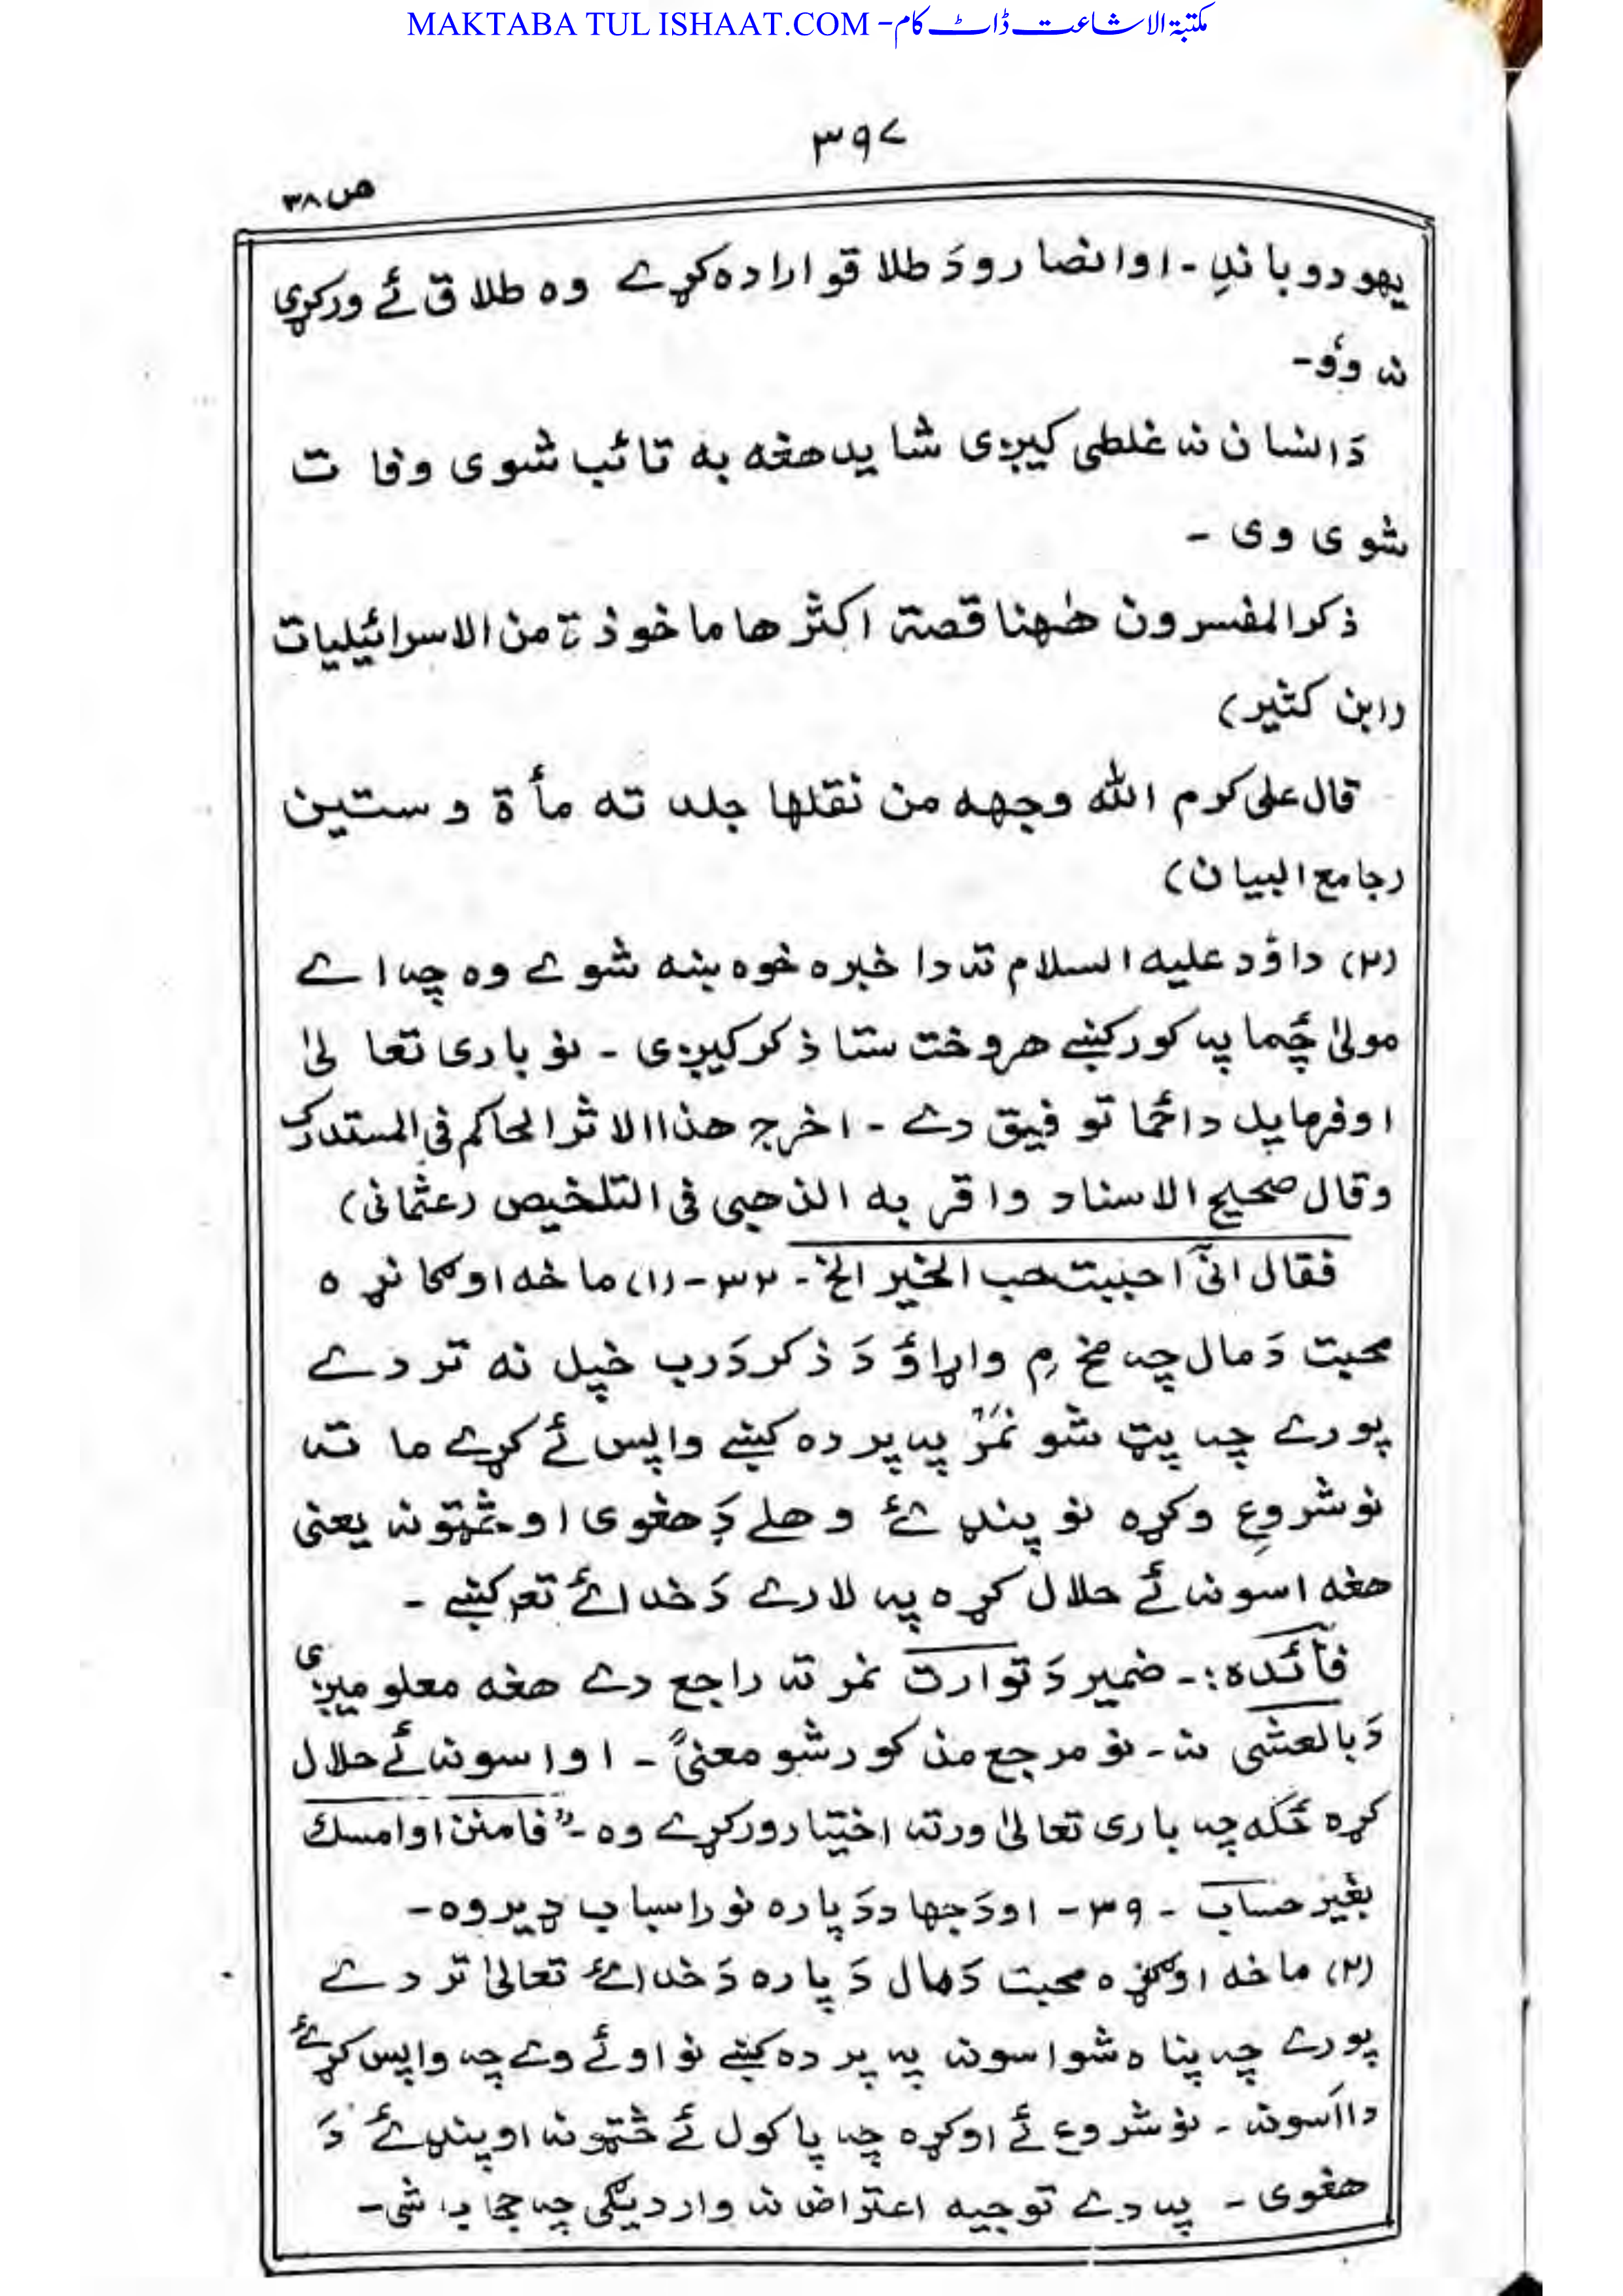 MAKTABA TUL ISHAAT.COM -مکتبۃ الاشاعت ڈاٹ کام
۳۹۷
ص ۳۸
یهودو باندِ - او انصارو دَ طلاقو اراده کړے وه طلاق ئے ورکړی
نه وؤ -
دَ انسان نه غلطی کیږی شاید هغه به تائب شوی وفات
شوی وی -
ذکر المفسرون هٰهنا قصة اکثرها ماخوذة من الاسرائیلیات
(ابن کثیر)
قال علی کرم الله وجهه من نقلها جلدته مأة وستین
(جامع البیان)
(۲) داؤد علیه السلام ته دا خبره خوښه شوے وه چه اے
مولیٰ ځما په کور کښے هر وخت ستا ذکر کیږی - نو باری تعالیٰ
اوفرمایل دا ځما توفیق دے - اخرج هذا الاثر الحاکم فی المستدرک
وقال صحیح الاسناد واقر به الذهبی فی التلخیص (عثمانی)
فقال انیٓ احببت حب الخیر الخ - ۳۲ - (۱) ما خه اوګانړه
محبت دَ مال چه مخ مِ واړاؤ دَ ذکر دَ رب خپل نه تر دے
پورے چه پټ شو نمر په پرده کښے واپس ئے کړے ما ته
نو شروع وکړه نو پنډئے وهلے دَ هغوی او څټونه یعنی
هغه اسونه ئے حلال کړه په لارے دَ خدائے تعہ کښے -
فائده :- ضمیر دَ توارت نمر ته راجع دے هغه معلومیږی
دَ بالعشی نه - نو مرجع مذکور شو معنیً - او اسونه ئے حلال
کړه ځکه چه باری تعالیٰ ورته اختیار ورکړے وه - "فامنن او امسک
بغیر حساب - ۳۹ - او دَ جهاد دَ پاره نور اسباب ډیر وه -
(۲) ما خه اوګڼړه محبت دَ مال دَ پاره دَ خدائے تعالیٰ تر دے
پورے چه پناه شو اسونه په پرده کښے نو اوئے وے چه واپس کړئے
دا اَسونه - نو شروع ئے اوکړه چه پاکول ئے څټونه او پنډئے دَ
هغوی - په دے توجیه اعتراض نه واردیګی چه شی -